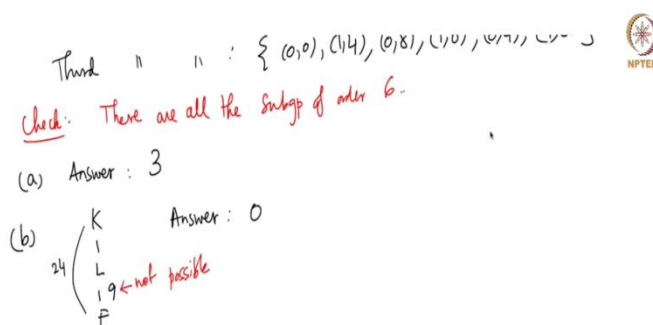 Third " " : { (0,0), (1,4), (0,8), (1,0),
NPTEL
Check: These are all the subgp of order 6.
(a) Answer : 3
(b) K Answer : 0
24 L
9 ← not possible
F